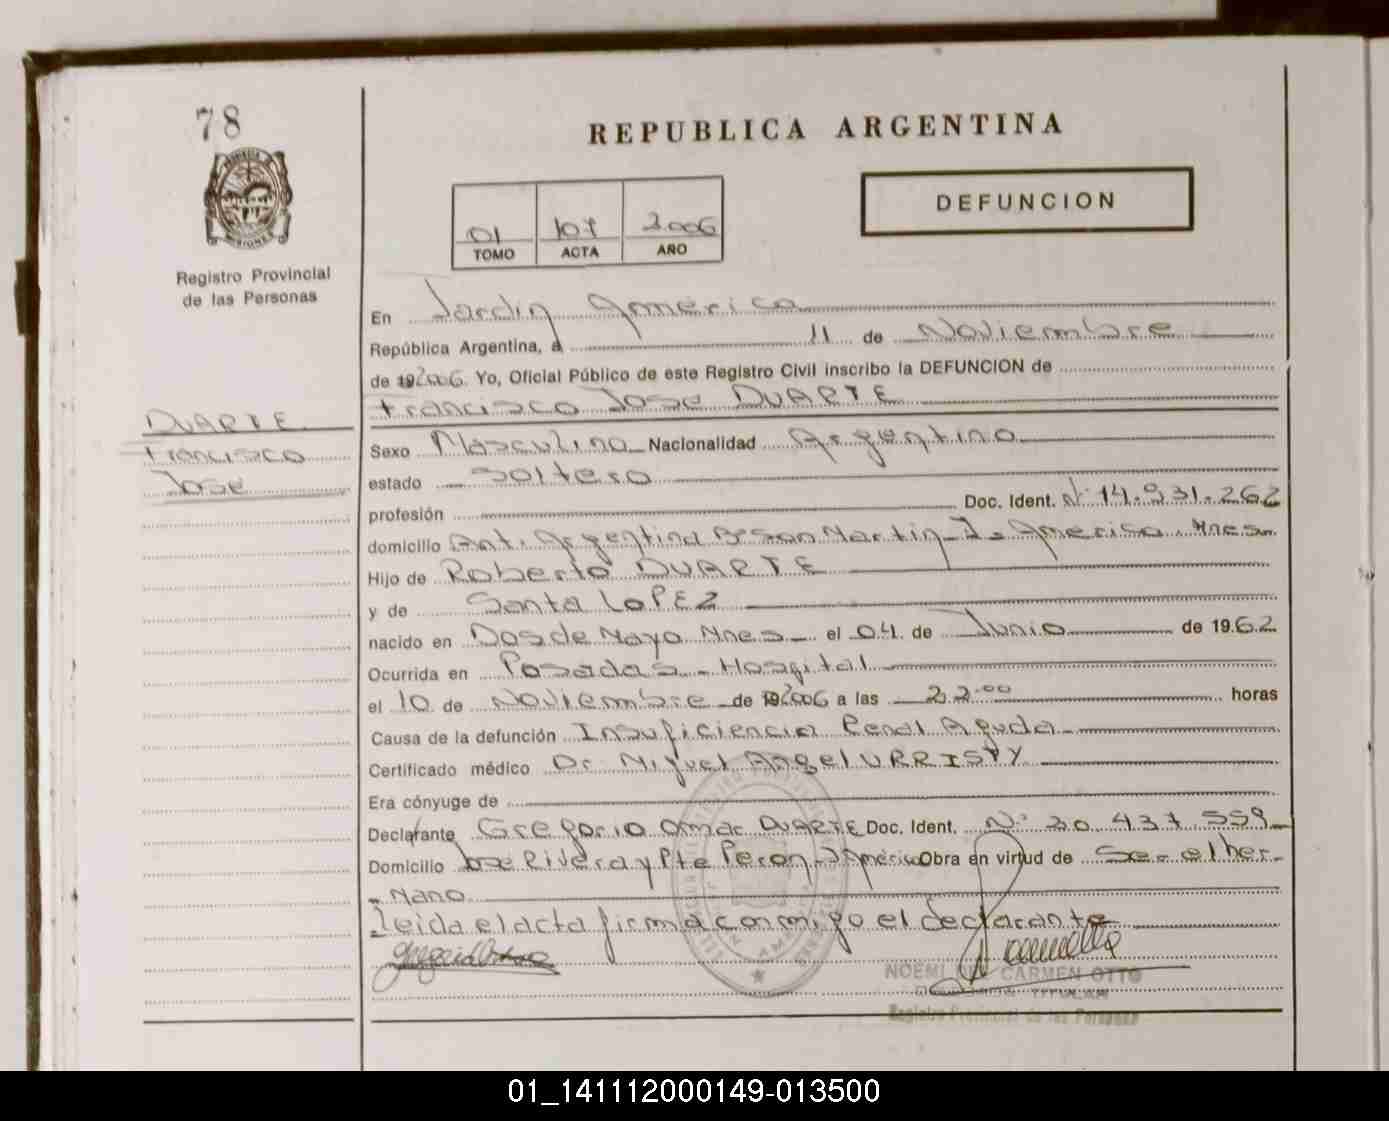 78
REPUBLICA ARGENTINA
DEFUNCION
01 107 2006
TOMO ACTA AÑO
Registro Provincial
de las Personas
En Jardin America
República Argentina, a 11 de Noviembre
de 192006. Yo, Oficial Público de este Registro Civil inscribo la DEFUNCION de
Francisco Jose DUARTE
DUARTE
Francisco
Jose
Sexo Masculino Nacionalidad Argentino
estado soltero
profesión Doc. Ident. Nº 14.931.262
domicilio Ant. Argentina Bº San Martin - J. America. Mnes.
Hijo de Roberto DUARTE
y de Santa LOPEZ
nacido en Dos de Mayo Mnes - el 04 de Junio de 1962
Ocurrida en Posadas - Hospital
el 10 de Noviembre de 192006 a las 22.00 horas
Causa de la defunción Insuficiencia Renal Aguda
Certificado médico Dr. Miguel Angel URRISTY
Era cónyuge de
Declarante Gregorio Omar DUARTE Doc. Ident. Nº 30.437.559
Domicilio Jose Rivera y Pte Peron - J América Obra en virtud de Ser el her-
mano
Leida el acta firma conmigo el declarante
NOEMI DEL CARMEN OTTO
TITULAR
Registro Provincial de las Personas
01_141112000149-013500